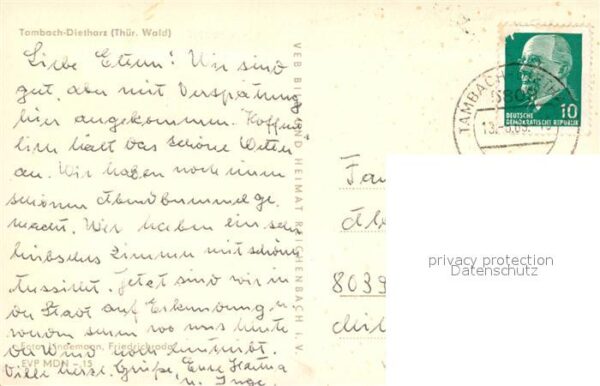 Tambach-Dietharz (Thür. Wald)
Liebe Eltern! Wir sind
gut, aber mit Verspätung
hier angekommen. Hoffent
lich hält das schöne Wetter
an. Wir haben noch einen
schönen Abendbummel ge
macht. Wir haben ein sehr
hübsches Zimmer mit schöner
Aussicht. Jetzt sind wir in
der Stadt auf Erkundung u.
wo uns heute
der Wind noch
Viele herzl. Grüße, Eure
u. Inge
Foto: Lindemann, Friedrichroda
EVP MDN -.15
VEB BILD UND HEIMAT REICHENBACH I. V.
TAMBACH-
580
13.-5.65.
10
DEUTSCHE
DEMOKRATISCHE REPUBLIK
Fam
8039
privacy protection
Datenschutz